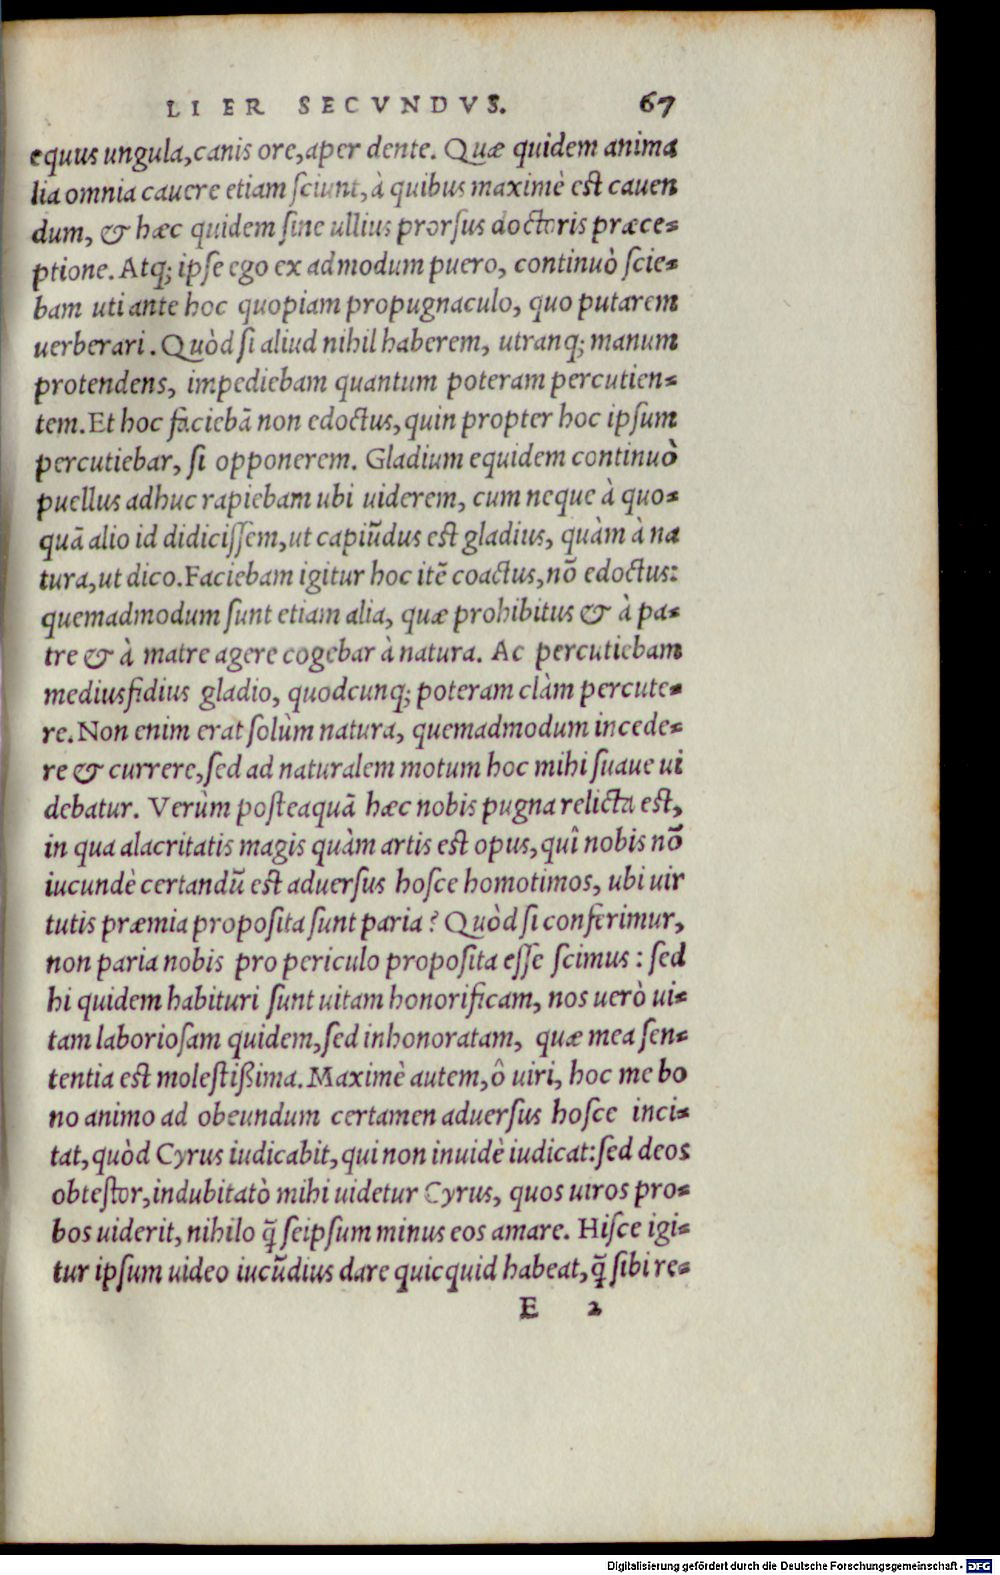 LI ER SECVNDVS. 67
equus ungula, canis ore, aper dente. Quæ quidem anima
lia omnia cauere etiam ſciunt, à quibus maximè est cauen
dum, & hæc quidem ſine ullius prorſus doctoris præce-
ptione. Atq; ipſe ego ex admodum puero, continuò ſcie-
bam uti ante hoc quopiam propugnaculo, quo putarem
uerberari. Quòd ſi aliud nihil haberem, utranq; manum
protendens, impediebam quantum poteram percutien-
tem. Et hoc faciebā non edoctus, quin propter hoc ipſum
percutiebar, ſi opponerem. Gladium equidem continuò
puellus adhuc rapiebam ubi uiderem, cum neque à quo-
quā alio id didiciſſem, ut capiūdus est gladius, quàm à na
tura, ut dico. Faciebam igitur hoc itē coactus, nō edoctus:
quemadmodum ſunt etiam alia, quæ prohibitus & à pa-
tre & à matre agere cogebar à natura. Ac percutiebam
mediusfidius gladio, quodcunq; poteram clàm percute-
re. Non enim erat ſolùm natura, quemadmodum incede-
re & currere, ſed ad naturalem motum hoc mihi ſuaue ui
debatur. Verùm poſteaquā hæc nobis pugna relicta est,
in qua alacritatis magis quàm artis est opus, quî nobis nō
iucundè certandū est aduerſus hoſce homotimos, ubi uir
tutis præmia propoſita ſunt paria? Quòd ſi conferimur,
non paria nobis pro periculo propoſita eſſe ſcimus: ſed
hi quidem habituri ſunt uitam honorificam, nos uerò ui-
tam laborioſam quidem, ſed inhonoratam, quæ mea ſen-
tentia est moleſtißima. Maximè autem, ô uiri, hoc me bo
no animo ad obeundum certamen aduerſus hoſce inci-
tat, quòd Cyrus iudicabit, qui non inuidè iudicat: ſed deos
obteſtor, indubitatò mihi uidetur Cyrus, quos uiros pro-
bos uiderit, nihilo q̃ ſeipſum minus eos amare. Hiſce igi-
tur ipſum uideo iucūdius dare quicquid habeat, q̃ ſibi re-
E 2
Digitalisierung gefördert durch die Deutsche Forschungsgemeinschaft - DFG